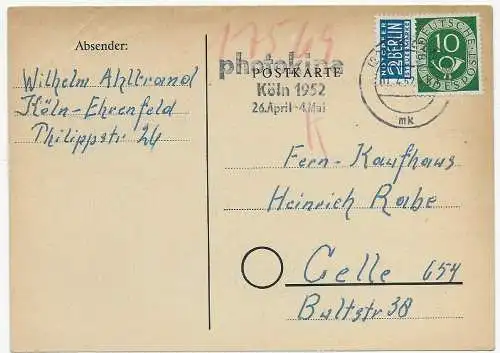 Absender:
Wilhelm Ahlbrand
Köln-Ehrenfeld
Philippstr 24
17549
photokina
POSTKARTE
Köln 1952
26.April-4.Mai
NOTOPFER
2 BERLIN
STEUERMARKE
10
DEUTSCHE
BUNDESPOST
mk
Fern-Kaufhaus
Heinrich Rabe
Celle 654
Bultstr 38